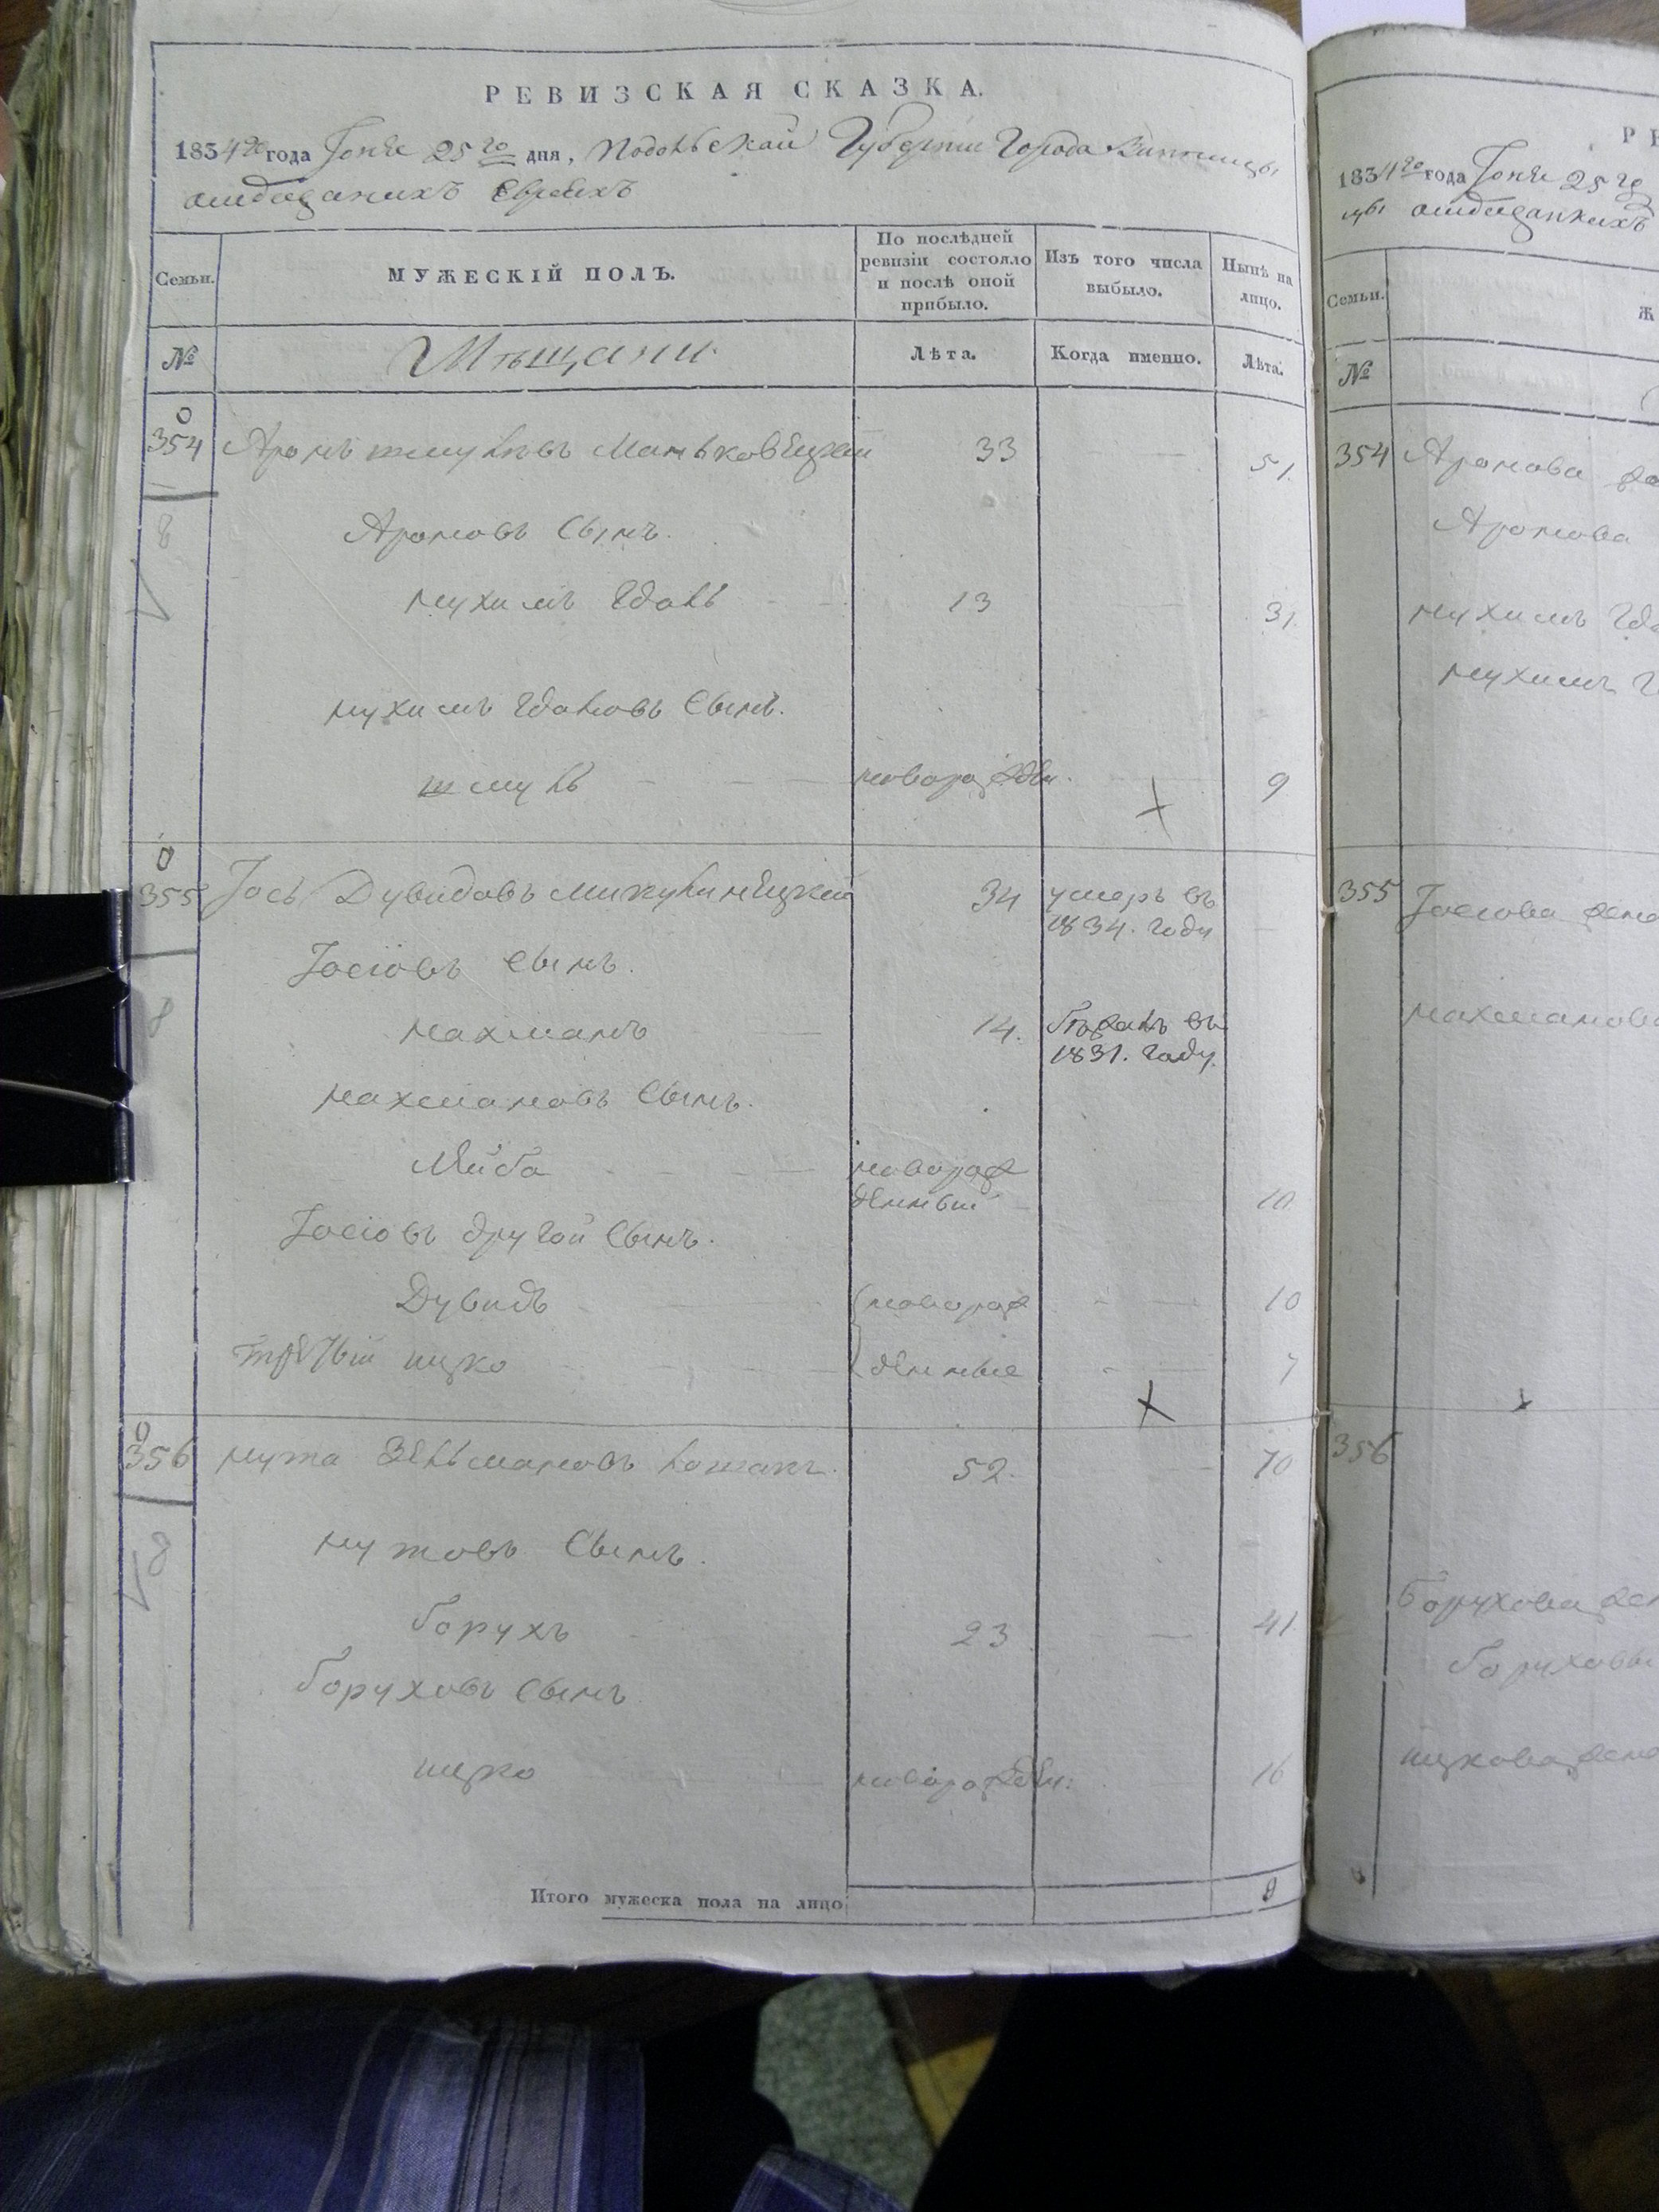 РЕВИЗСКАЯ СКАЗКА.
1834го года Іюня 25го дня, Подольской Губерніи Города Винницы
о мѣщанахъ Евреяхъ
Семьи.
МУЖЕСКІЙ ПОЛЪ.
По послѣдней ревизіи состояло и послѣ оной прибыло.
Изъ того числа выбыло.
Нынѣ на лицо.
№
Мѣщани
Лѣта.
Когда именно.
Лѣта.
354 Аронъ Шмулевъ Маньковецкий 33 51.
8
Ароновъ Сынъ.
Нухимъ 13 31.
Нухимъ Сынъ.
Шмуль новорожден. 9
355 Іось Дувидовъ Микулинецкий 34 умеръ въ 1834. году
8
Іосіовъ Сынъ.
Нахманъ 14. бѣжалъ въ 1831. году.
Нахмановъ Сынъ.
Лейба новорожденный 10
Іосіовъ другой Сынъ.
Дувидъ новорож 10
третый Ицко денные 7
356 Нута Зельмановъ Лошакъ. 52. 70
8
Нутовъ Сынъ.
Борухъ 23 41
Боруховъ Сынъ
Ицко новорожден: 16
Итого мужеска пола на лицо 9
РЕ
1834го года Іюня 25го
цы
Семьи.
Ж
№
354 Аронова
Аронова
Нухимъ
Нухимъ
355 Іосіова жена
Нахманова
356
Борухова жен
Боруховы
Ицкова жена